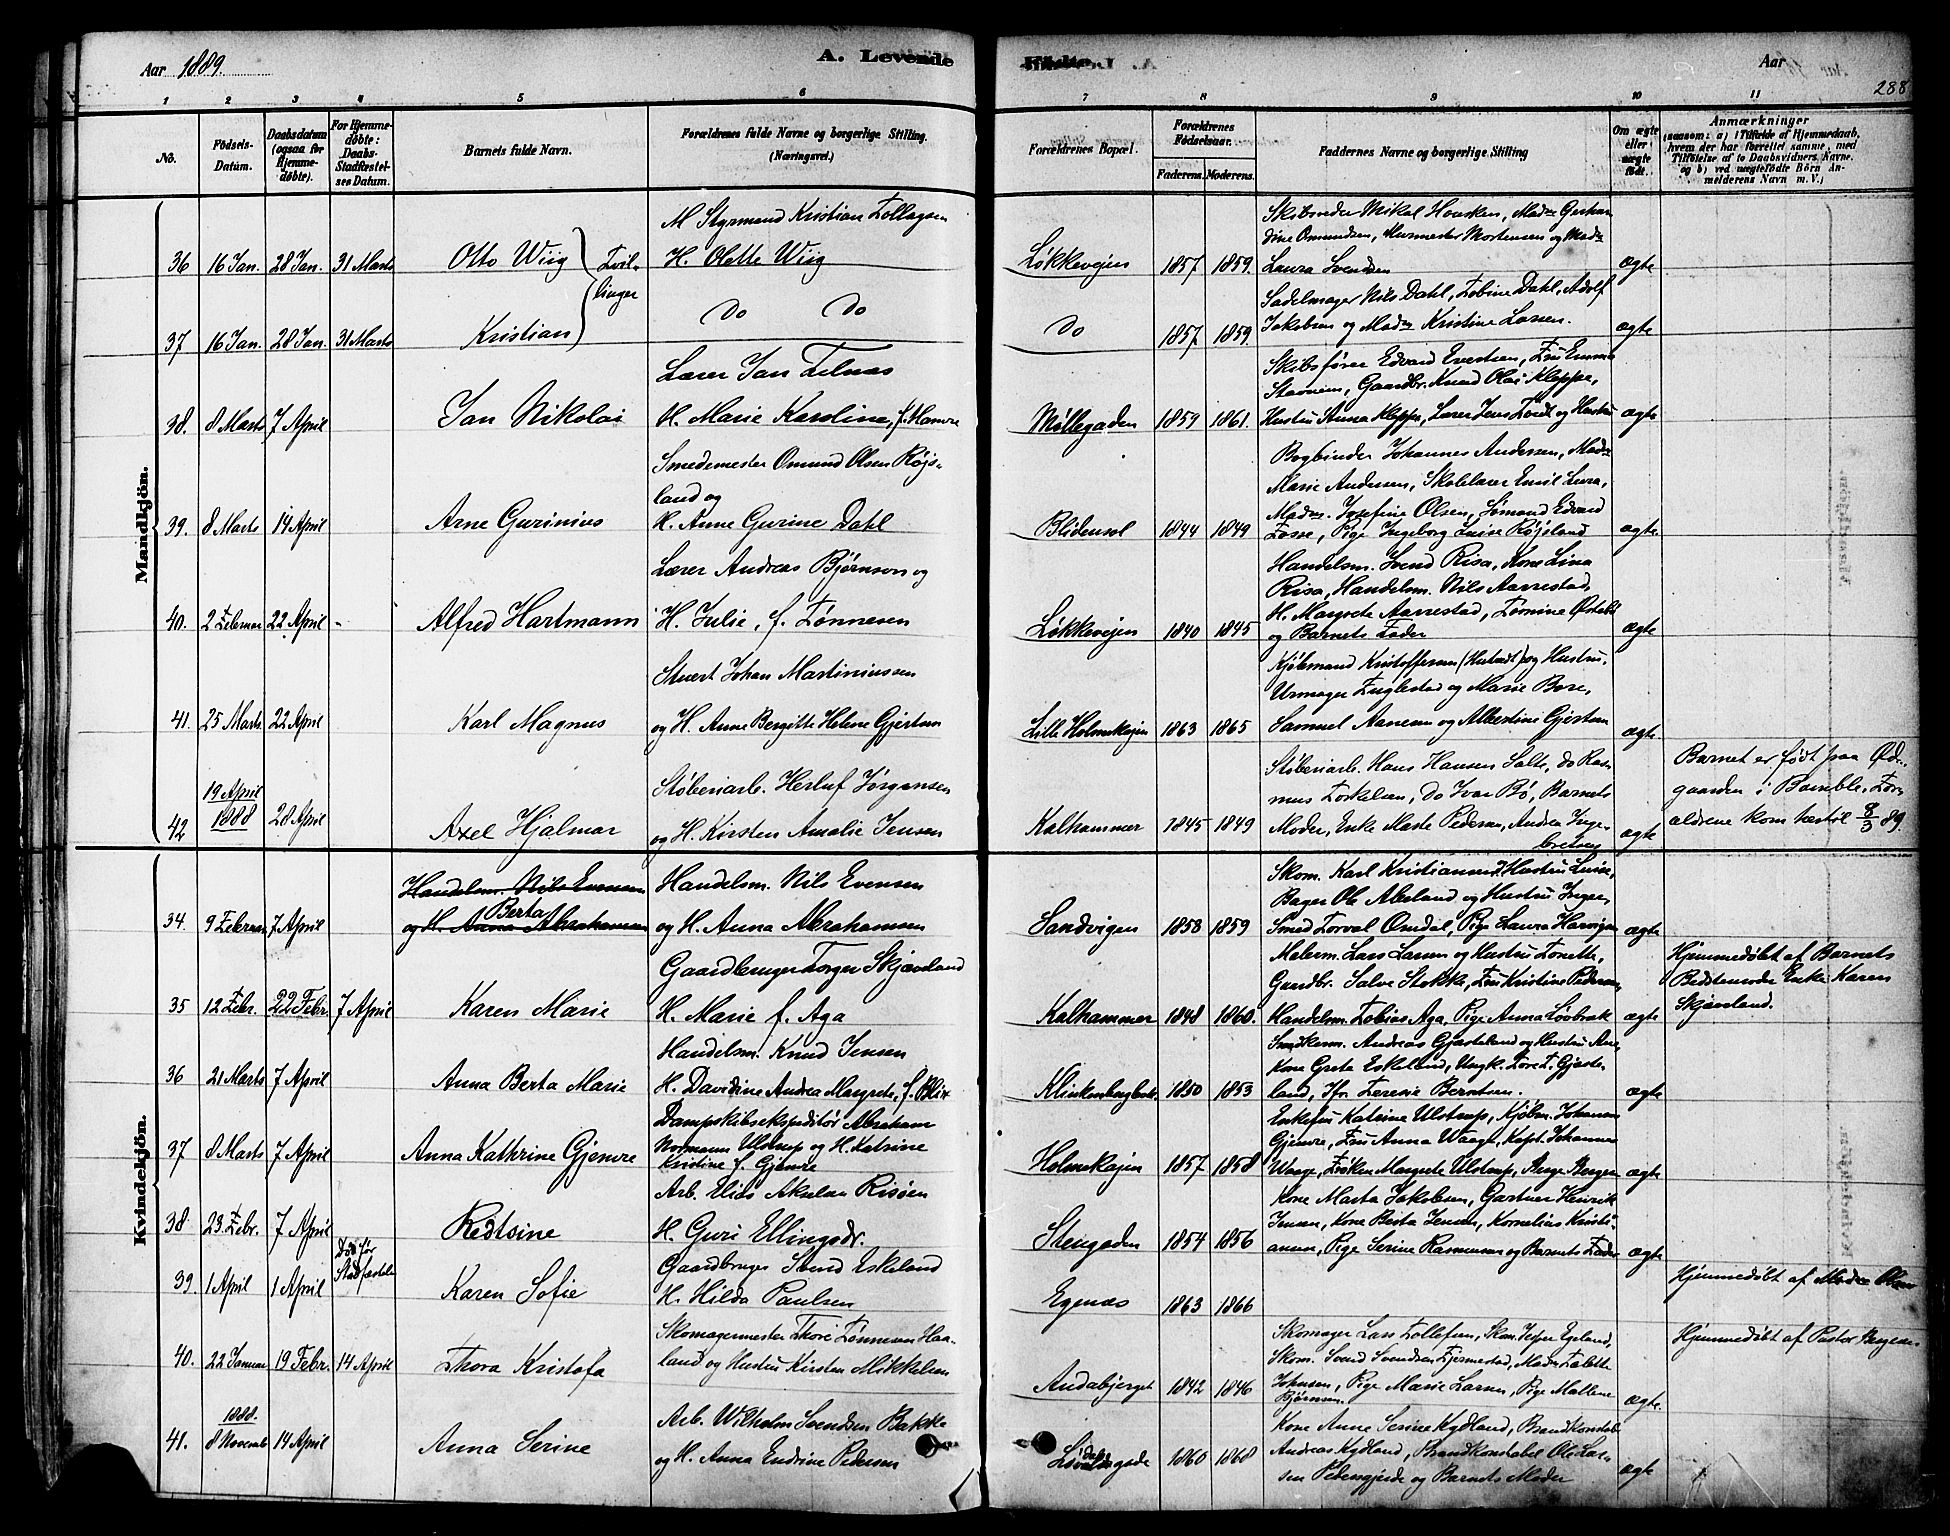 Aar 1889.
A. Levende
Fødte.
Aar
288
1 2 3 4 5 6 7 8 9 10 11
No.
Fødsels-
Datum.
Daabsdatum
(ogsaa for
Hjemme-
døbte).
For Hjemme-
døbte:
Daabs-
Stadfæstel-
ses Datum.
Barnets fulde Navn.
Forældrenes fulde Navne og borgerlige Stilling.
(Næringsvei.)
Forældrenes Bopæl.
Forældrenes
Fødselsaar.
Faderens. Moderens.
Faddernes Navne og borgerlige Stilling
Om ægte
eller
uægte
født.
Anmærkninger
(saasom: a) i Tilfælde af Hjemmedaab,
hvem der har forrettet samme, med
Tilføielse af to Daabsvidners Navne,
og b) ved uægtefødte Børn An-
melderens Navn m. V.)
Mandkjön.
M Styrmand Kristian Tollagsen
Skibsreder Mikal Housken, Madm Gerhar
dine Omundsen, Murmester Mortensen og Madm
36 16 Jan. 28 Jan. 31 Marts Otto Wiig Tvil- H. Olette Wiig Løkkevejen 1857 1859. Laura Svendsen ægte
linger
Sadelmager Nils Dahl, Tobine Dahl, Adolf
37 16 Jan. 28 Jan. 31 Marts Kristian Do Do Do 1857 1859. Jakobsen og Madm Kristine Larsen. ægte
Lærer Jan Telnæs
Skibsfører Edvard Evertsen, Fru Emma
Stavnem, Gaardbr. Knud Olai Kleppe,
38. 8 Marts 7 April Jan Nikolai H. Marie Karoline, f. Hamre Møllegaden 1859 1861. Hustru Anna Kleppe, Lærer Jens Tvedt og Hustru ægte
Smedemester Omund Olsen Røjs-
land og
Bogbinder Johannes Andersen, Madm
Marie Andersen, Skolelærer Emil Lura,
Madm. Josefine Olsen, Sømand Edvard
39. 8 Marts 14 April Arne Gurinius H. Anne Gurine Dahl Blidensol 1844 1849 Fosse, Pige Ingeborg Luise Røjsland ægte.
Lærer Andreas Bjørnson og
Handelsm. Svend Risa, Kone Lina
Risa, Handelsm. Nils Aarrestad,
H. Margrete Aarrestad, Tomine Østebø
40. 2 Februar 22 April - Alfred Hartmann H. Julie, f. Tønnesen Løkkevejen 1840 1845 og Barnets Fader ægte
Stuert Johan Martiniussen
Kjøbmand Kristoffersen og Hustru.
Urmager Fuglestad og Marie Bore,
41. 25 Marts 22 April Karl Magnus og H. Anne Bergitte Helene Gjertsen Lille Holmekajen 1863 1865 Samuel Aanesen og Albertine Gjertsen ægte.
Støberiarb. Herluf Jørgensen
Støberiarb. Hans Hansen Salte, do Ras-
mus Torkelsen, Do Ivar Bø, Barnets
Barnet er født paa Øde-
gaarden i Bamble. For-
ældrene kom hertil 8/3 89.
42 19 April 1888 28 April Axel Hjalmar og H. Kirsten Amalie Jensen Kalhammer 1845 1849 Moder, Enke Marte Pedersen, Andrea Inge- ægte
bretsen
Kvindekjön.
Handelsm. Nils Evensen Handelsm. Nils Evensen
Skom. Karl Kristiansen, Hustru Luise,
Bager Ole Abeland og Hustru Inger
34. 9 Februar 7 April Berta og H. Anna Abrahamsen og H. Anna Abrahamsen Sandvigen 1858 1859 Smed Torval Omdal, Pige Laura ægte
Gaardbruger Torger Skjæveland
Malerm. Lars Larsen og Hustru Tonette,
Gaardbr. Salve Stokke, Fru Kristine Pedersen,
Hjemmedøbt af Barnets
Bedstemoder Enke Karen
Skjæveland.
35 12 Febr. 22 Febr. 7 April Karen Marie H. Marie f. Aga Kalhammer 1848 1860. Handelsm. Tobias Aga, Pige Anna Løvbrak ægte
Handelsm. Knud Jensen
Snedkerm. Andreas Gjesteland og Hustru Ane,
Kone Grete Eskeland, Ungk. Tore T. Gjeste-
36 21 Marts 7 April Anna Berta Marie H. Davidine Andrea Margrete, f. Blix 1850 1853 land, Jfr. Terese Berntsen. ægte
Dampskibsekspeditør Abraham
Normann Ulstrup og H. Katrine
Kristine f. Gjemre
Enkefru Katrine Ulstrup, Kjøbm. Johannes
Gjemre, Fru Anna Waage, Kapt. Johannes
37 8 Marts 7 April Anna Kathrine Gjemre Holmekajen 1857 1858 Waage, Frøken Margrete Ulstrup, ægte
Arb. Elias Risøen
Kone Marta Jakobsen, Gartner Henrik
Jensen, Kone Berta Jensen, Kornelius Kristi-
38. 23 Febr. 7 April Redtsine H. Guri Ellingsdr. Stengaden 1854 1856 ansen, Pige Serine Rasmussen og Barnets Fader ægte
Død før
Stadfæstelse
Gaardbruger Svend Eskeland
Hjemmedøbt af Madm Olsen
39. 1 April 1 April Karen Sofie H. Hilda Paulsen Egenæs 1863 1866
Skomagermester Thore Tønnesen Haa-
Skomager Lars Tollefsen, Skom. Jesper Egeland,
Hjemmedøbt af Pastor
40. 22 Januar 19 Febr. 14 April Thora Kristofa land og Hustru Kirsten Mikkelsen
Skom. Svend Svendsen Fjermestad, Madm Talette
Andabjerget 1842 1846 Johnsen, Pige Marie Larsen, Pige Mallene ægte.
Bjørnsen.
1888.
Arb. Wilhelm Svendsen Bakke
Kone Anne Serine Kydland, Brandkonstab.
41. 8 Novemb 14 April Anna Serine og H. Anna Endrine Pedersen 1860 1868 Andreas Kydland, Brandkonstabel Ole Lar-
sen Pedersgjerde og Barnets Moder ægte